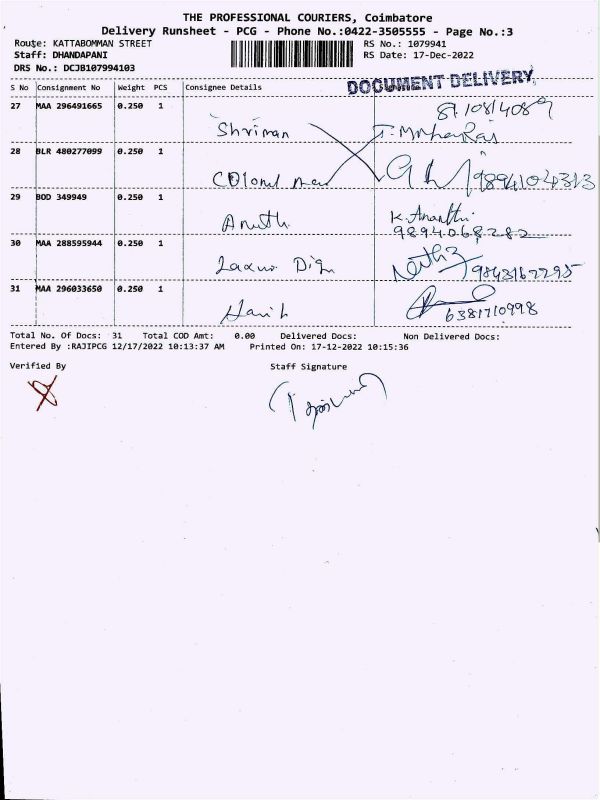 THE PROFESSIONAL COURIERS, Coimbatore
Delivery Runsheet - PCG - Phone No.:0422-3505555 - Page No.:3
Route: KATTABOMMAN STREET RS No.: 1079941
Staff: DHANDAPANI RS Date: 17-Dec-2022
DRS No.: DCJB107994103
DOCUMENT DELIVERY
S No Consignment No Weight PCS Consignee Details
27 MAA 296491665 0.250 1
Shriman
28 BLR 480277099 0.250 1
Colonel 9894104313
29 BOD 349949 0.250 1
K. Ananthi
9894068282
30 MAA 288595944 0.250 1
31 MAA 296033650 0.250 1
6381710998
Total No. Of Docs: 31 Total COD Amt: 0.00 Delivered Docs: Non Delivered Docs:
Entered By :RAJIPCG 12/17/2022 10:13:37 AM Printed On: 17-12-2022 10:15:36
Verified By Staff Signature